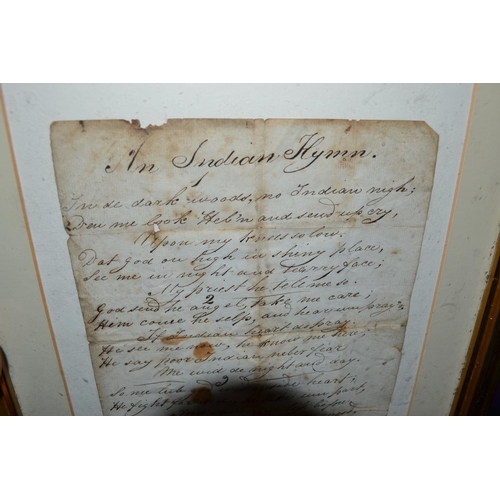 An Indian Hymn.
1
In de dark woods, no Indian nigh;
Den me look Heb'n and send up cry,
Upon my knees so low.
Dat God on high in shiny place,
See me in night and tarry face;
My priest he tell me so.
2
God send he angel, take me care;
Him come he self, and
If Indian heart do pray.
He see me now, he know me
He say poor Indian neber fear
Me wid de night and day.
3
So me lub heart;
He fight